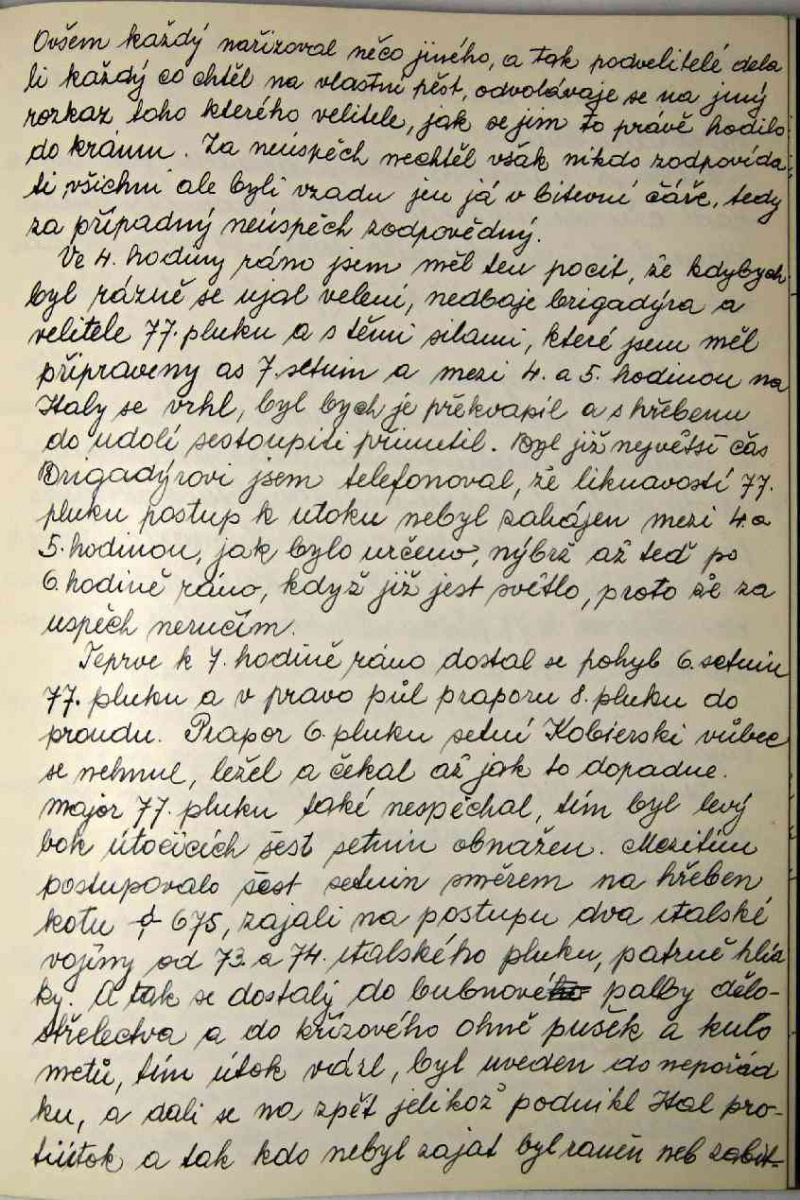 Ovšem každý nařizoval něco jiného, a tak podvelitelé dela
li každý co chtěl na vlastní pěst, odvolávaje se na jiný
rozkaz toho kterého velitele, jak se jim to právě hodilo
do krámu. Za neúspěch nechtěl však nikdo zodpovída
ti, všichni ale byli vzadu jen já v bitevní čáře, tedy
za případný neúspěch zodpovědný.
Ve 4. hodiny ráno jsem měl ten pocit, že kdybych
byl rázně se ujal velení, nedbaje brigadýra a
velitele 77. pluku a s těmi silami, které jsem měl
připraveny as 7. setnin a mezi 4. a 5. hodinou na
Italy se vrhl, byl bych je překvapil a s hřebenu
do udolí sestoupiti přinutil. Byl již největší čas
Brigadýrovi jsem telefonoval, že liknavostí 77.
pluku postup k utoku nebyl zahájen mezi 4. a
5. hodinou, jak bylo určeno, nýbrž až teď po
6. hodině ráno, když již jest světlo, proto že za
uspěch neručím.
Teprve k 7. hodině ráno dostal se pohyb 6. setnin
77. pluku a v pravo půl praporu 8. pluku do
proudu. Prapor 6. pluku setní Kobierski vůbec
se nehnul, ležel a čekal až jak to dopadne.
major 77. pluku také nespěchal, tím byl levý
bok útočících šest setnin obnažen. Mezitím
postupovalo šest setnin směrem na hřeben
kotu 675, zajali na postupu dva italské
vojíny od 73. a 74. italského pluku, patrně hlíd
ky. A tak se dostaly do bubnové palby dělo-
střelectva a do křížového ohně pušek a kulo
metů, tím útok vázl, byl uveden do nepořád
ku, a dali se na zpět jelikož podnikl Ital pro-
tiútok a tak kdo nebyl zajat byl raněn neb zabit.